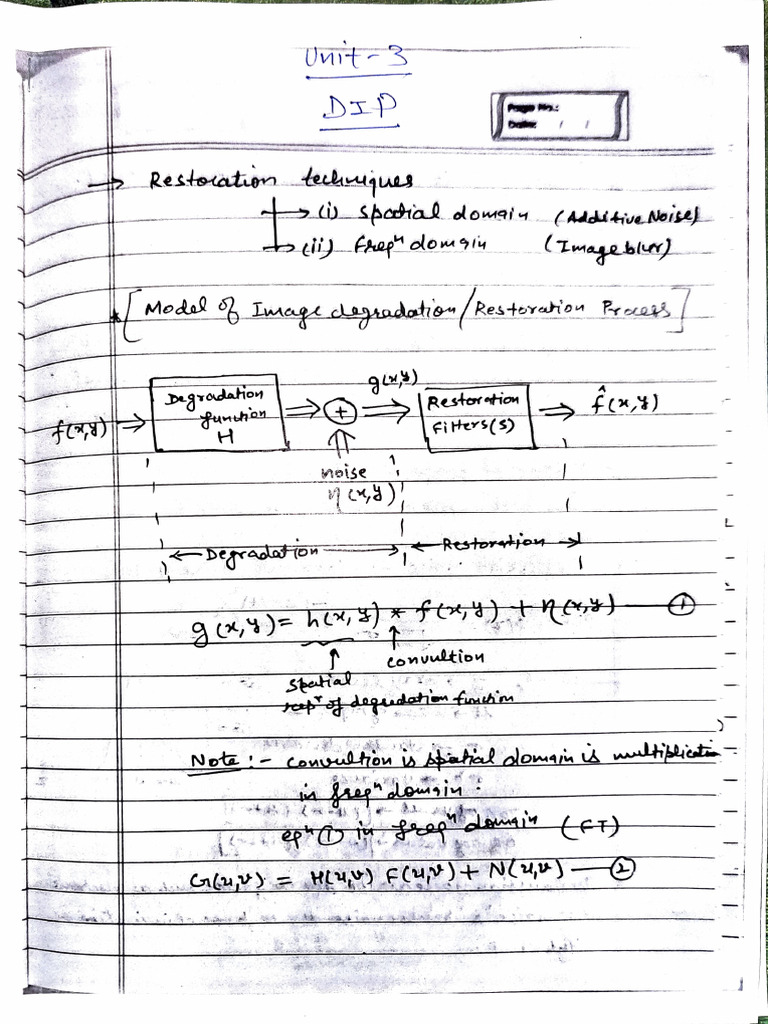 Unit-3
DIP
Page No.:
Date: / /
→ Restoration techniques
→ (i) Spatial domain (Additive Noise)
→ (ii) freqⁿ domain (Image blur)
* [Model of Image degradation/Restoration Process]
f(x,y) ⇒ Degradation function H ⇒ + ⇒ g(x,y) Restoration Filters(s) ⇒ f̂(x,y)
noise
η(x,y)
← Degradation → ← Restoration →
g(x,y) = h(x,y) * f(x,y) + η(x,y) — ①
↑ convultion
↑ spatial
repʳ of degredation function
Note :- convultion is spatial domain is multiplication
in freqⁿ domain.
eqⁿ ① in freqⁿ domain (FT)
G(u,v) = H(u,v) F(u,v) + N(u,v) — ②